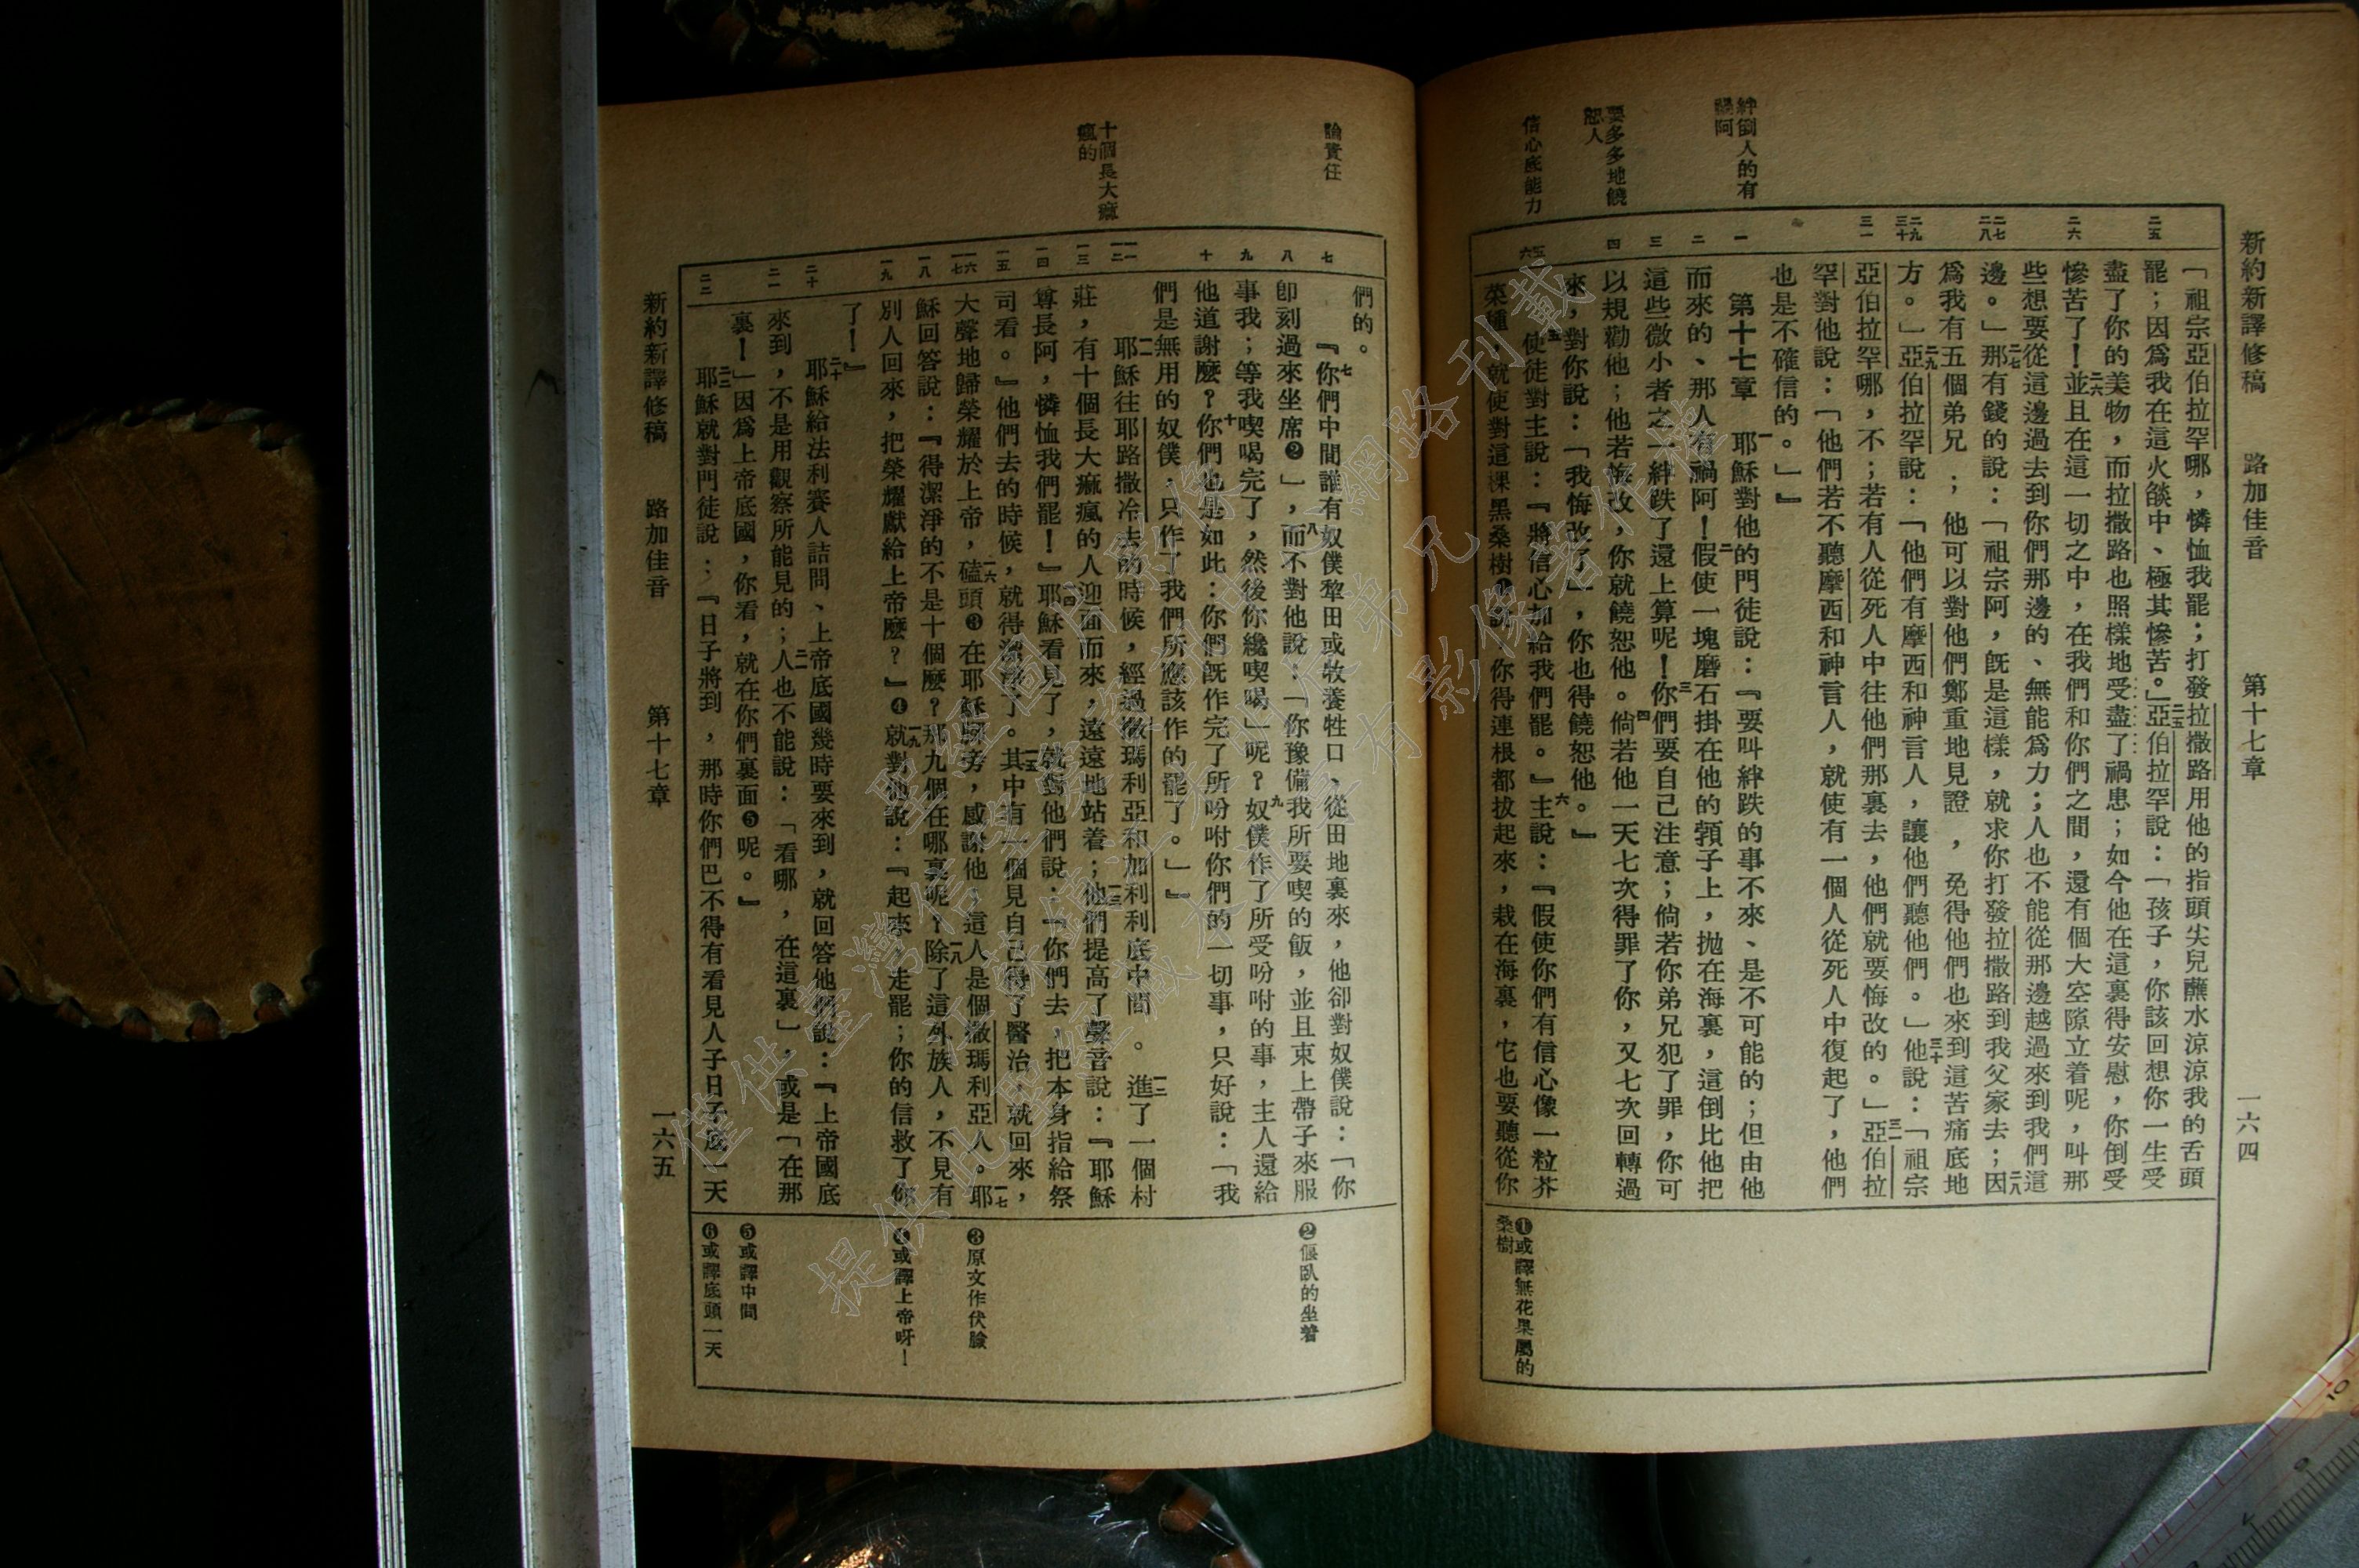 新約新譯修稿　路加佳音　第十七章　一六四
絆倒人的有
禍阿
要多多地饒
恕人
信心底能力
二五
二六
二七
二八
二九
三十
三一
一
二
三
四
五
六
「祖宗亞伯拉罕哪，憐恤我罷；打發拉撒路用他的指頭尖兒蘸水涼涼我的舌頭
罷；因爲我在這火燄中、極其慘苦。」二五亞伯拉罕說：「孩子，你該回想你一生受
盡了你的美物，而拉撒路也照樣地受盡了禍患；如今他在這裏得安慰，你倒受
慘苦了！二六並且在這一切之中，在我們和你們之間，還有個大空隙立着呢，叫那
些想要從這邊過去到你們那邊的、無能爲力；人也不能從那邊越過來到我們這
邊。」二七那有錢的說：「祖宗阿，旣是這樣，就求你打發拉撒路到我父家去；二八因
爲我有五個弟兄；他可以對他們鄭重地見證，免得他們也來到這苦痛底地
方。」二九亞伯拉罕說：「他們有摩西和神言人，讓他們聽他們。」三十他說：「祖宗
亞伯拉罕哪，不；若有人從死人中往他們那裏去，他們就要悔改的。」三一亞伯拉
罕對他說：「他們若不聽摩西和神言人，就使有一個人從死人中復起了，他們
也是不確信的。」』
第十七章　一耶穌對他的門徒說：『要叫絆跌的事不來、是不可能的；但由他
而來的、那人有禍阿！二假使一塊磨石掛在他的頸子上，拋在海裏，這倒比他把
這些微小者之一絆跌了還上算呢！三你們要自己注意；倘若你弟兄犯了罪，你可
以規勸他；他若悔改，你就饒恕他。四倘若他一天七次得罪了你，又七次回轉過
來，對你說：「我悔改了」，你也得饒恕他。』
五使徒對主說：『將信心加給我們罷。』六主說：『假使你們有信心像一粒芥
菜種，就使對這棵黑桑樹❶說：「你得連根都拔起來，栽在海裏」，它也要聽從你
❶或譯無花果屬的
桑樹
論責任
十個長大痲
瘋的
七
八
九
十
一一
一二
一三
一四
一五
一六
一七
一八
一九
二十
二一
二二
們的。
『七你們中間誰有奴僕犂田或牧養牲口、從田地裏來，他卻對奴僕說：「你
卽刻過來坐席❷」，八而不對他說：「你豫備我所要喫的飯，並且束上帶子來服
事我；等我喫喝完了，然後你纔喫喝」呢？九奴僕作了所受吩咐的事，主人還給
他道謝麽？十你們也是如此：你們旣作完了所吩咐你們的一切事，只好說：「我
們是無用的奴僕，只作了我們所應該作的罷了。」』
一一耶穌往耶路撒冷去的時候，經過撒瑪利亞和加利利底中間。一二進了一個村
莊，有十個長大痲瘋的人迎面而來，遠遠地站着；一三他們提高了聲音說：『耶穌
尊長阿，憐恤我們罷！』一四耶穌看見了，就對他們說：『你們去，把本身指給祭
司看。』他們去的時候，就得潔淨了。一五其中有一個見自己得了醫治，就回來，
大聲地歸榮耀於上帝，一六磕頭❸在耶穌腳旁，感謝他；這人是個撒瑪利亞人。一七耶
穌回答說：『得潔淨的不是十個麽？那九個在哪裏呢？一八除了這外族人，不見有
別人回來，把榮耀獻給上帝麽？』❹一九就對他說：『起來，走罷；你的信救了你
了！』
二十耶穌給法利賽人詰問、上帝底國幾時要來到，就回答他們說：『上帝國底
來到，不是用觀察所能見的；二一人也不能說：「看哪，在這裏」，或是「在那
裏！」因爲上帝底國，你看，就在你們裏面❺呢。』
二二耶穌就對門徒說：『日子將到，那時你們巴不得有看見人子日子底一天
❷偃臥的坐着
❸原文作伏臉
❹或譯上帝呀！
❺或譯中間
❻或譯底頭一天
新約新譯修稿　路加佳音　第十七章　一六五
僅供臺灣信望愛資訊中心網路刊載
提供此聖經藏本並享有影像著作權
10
9